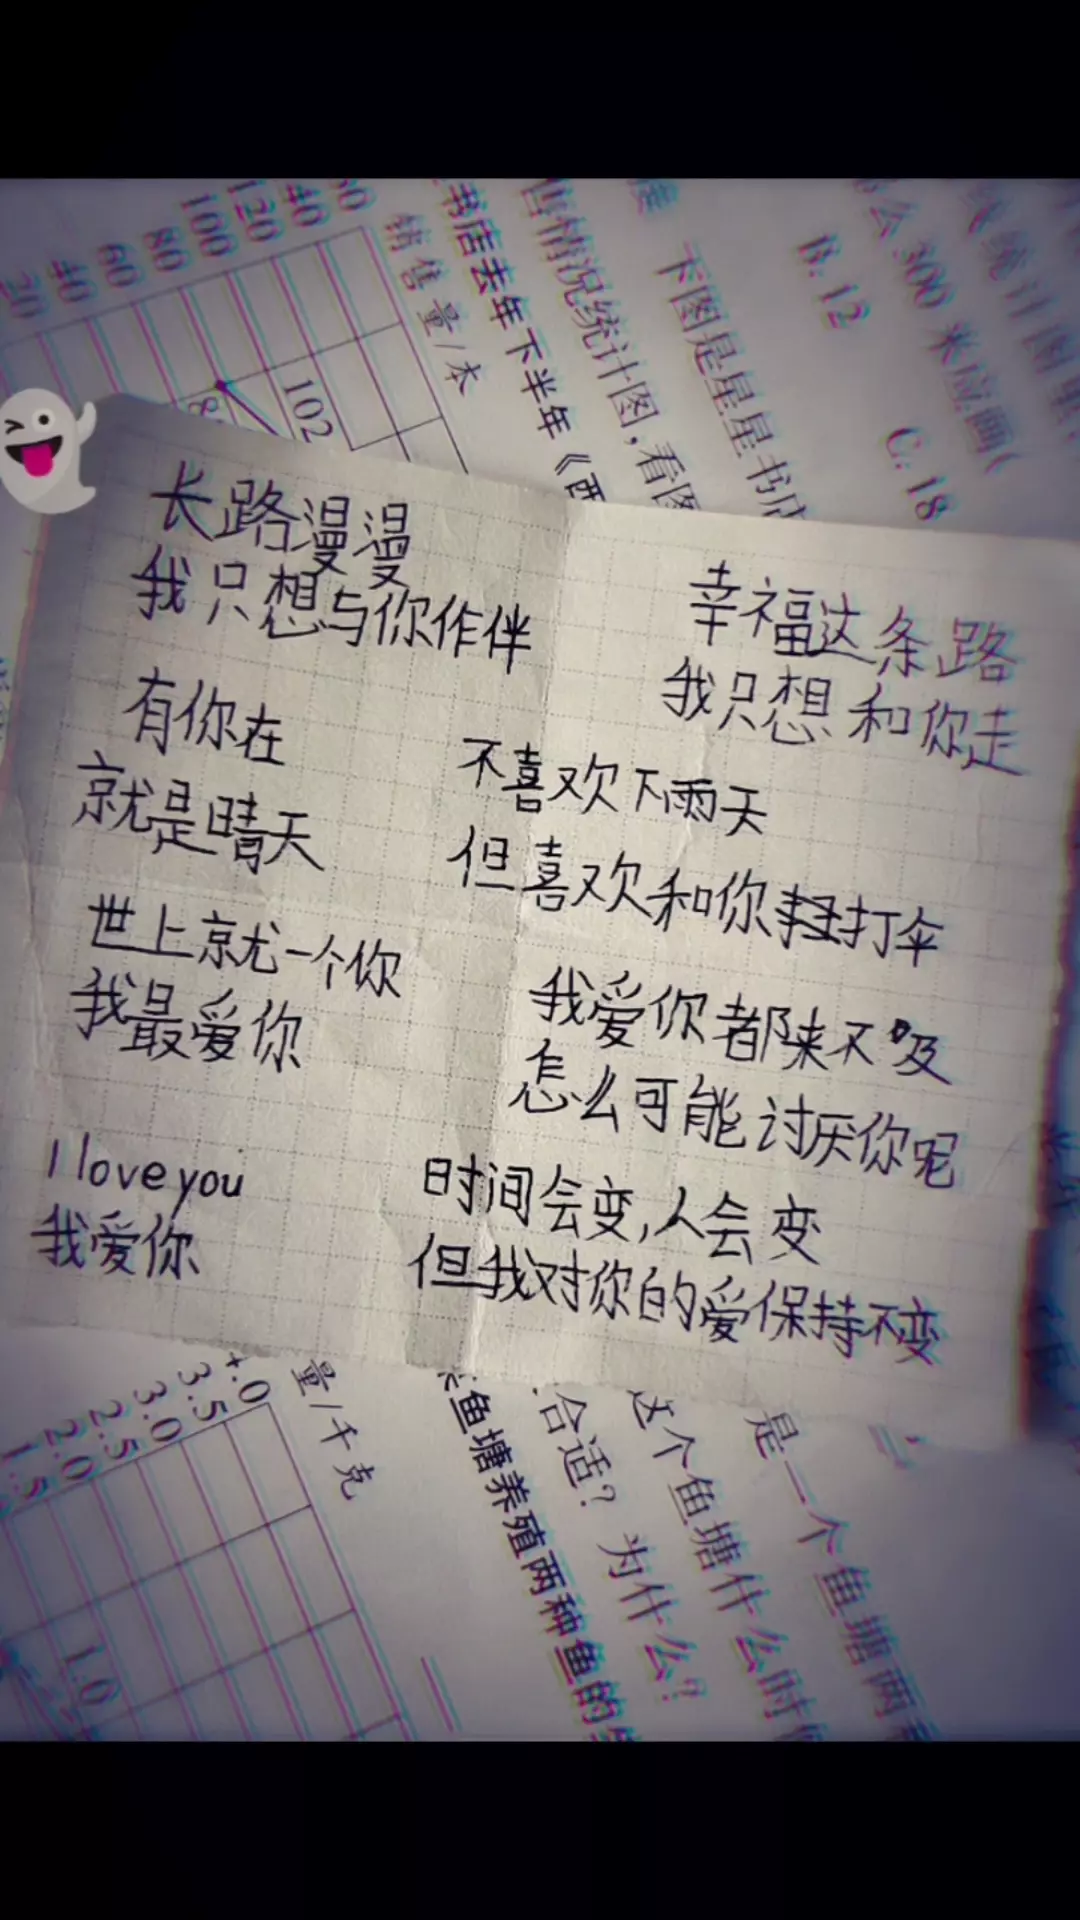 50
40
120
100
80
60
40
20
销售量/本
102
书店去年下半年《西
售情况统计图,看图
下图是星星书店
B. 12
C. 18
300 米应画(
长路漫漫
我只想与你作伴
幸福这条路
我只想和你走
有你在
就是晴天
不喜欢下雨天
但喜欢和你打伞
世上就一个你
我最爱你
我爱你都来不及
怎么可能讨厌你呢
I love you
我爱你
时间会变,人会变
但我对你的爱保持不变
量/千克
3.5
3.0
2.5
2.0
1.5
1.0
鱼塘养殖两种鱼的
合适?为什么?
这个鱼塘什么时
是一个鱼塘两